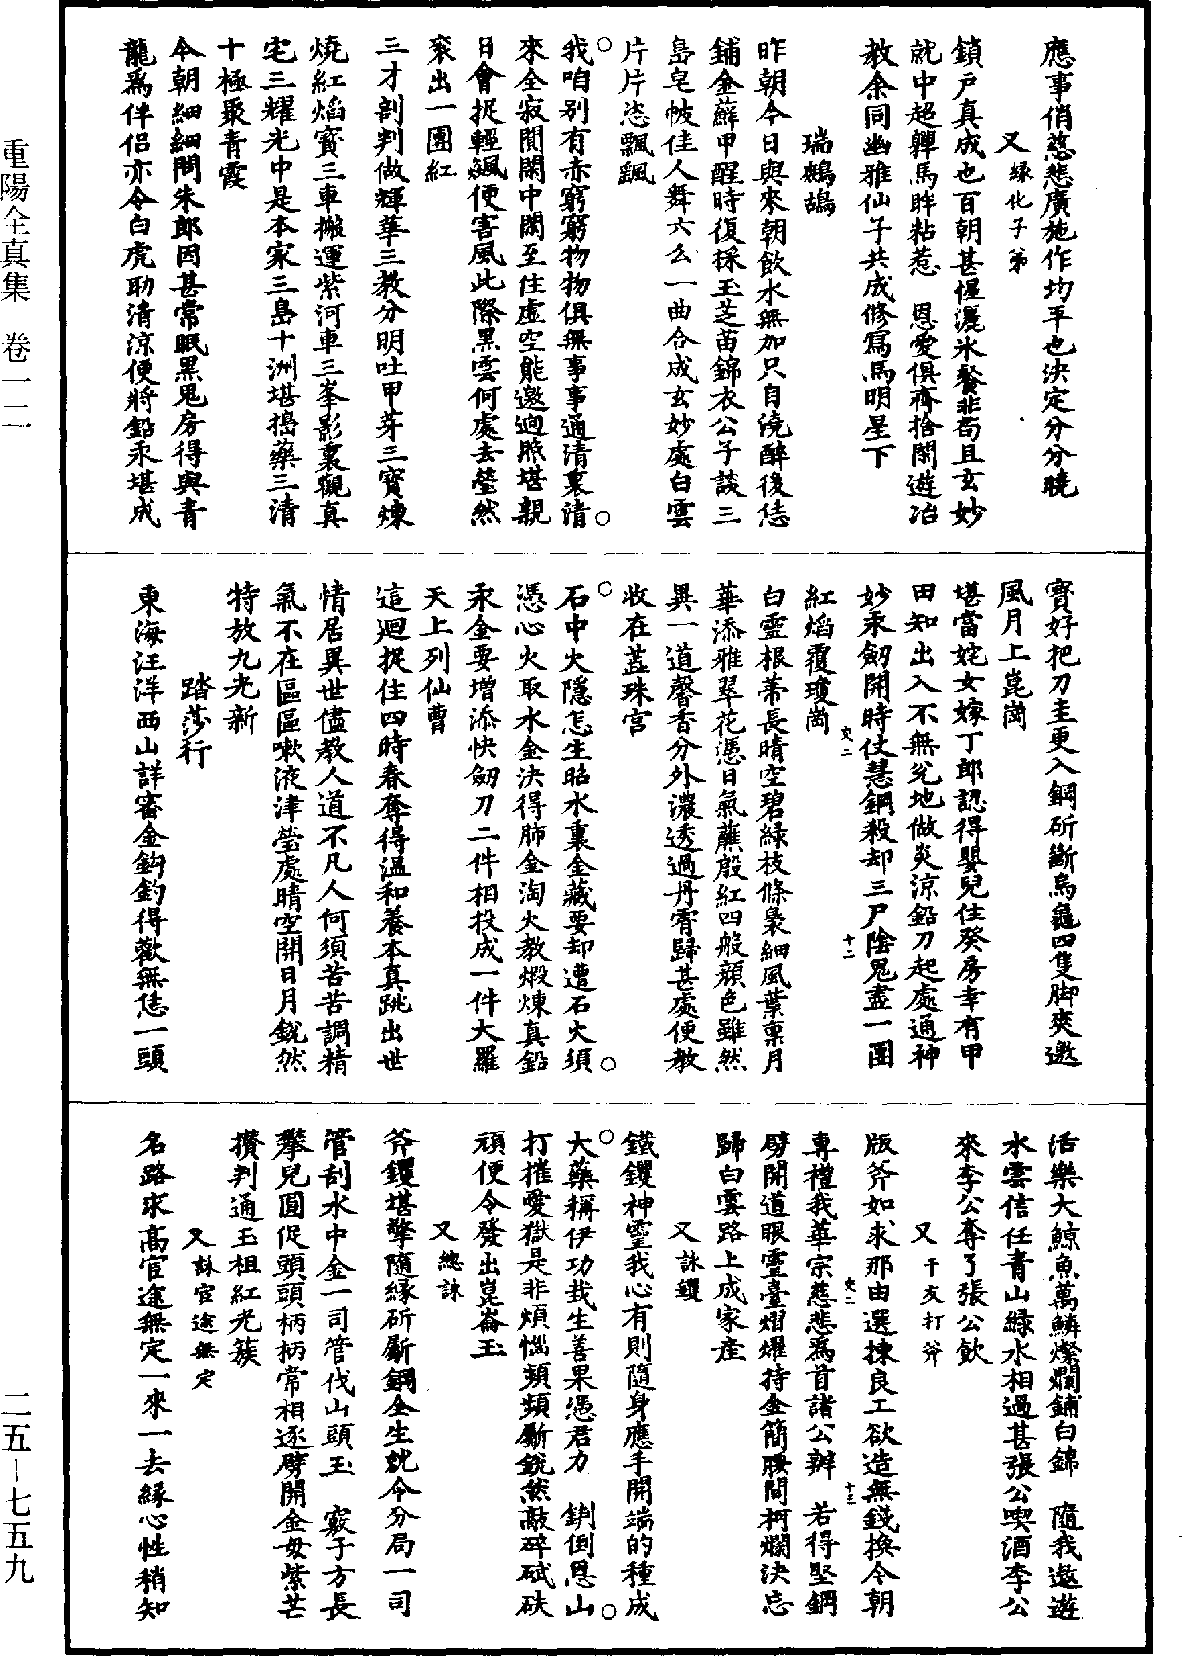 應事俏慈悲廣施作均平也決定分分曉
又 緣化子弟
鎖戶真成也百朝甚惺灑氷餐非苟且玄妙
就中超彈馬眸粘惹　恩愛俱齊捨閑遊冶
教余同幽雅仙子共成修寫馬明星下
瑞鷓鴣
昨朝今日與來朝飲水無加只自澆醉後恁
鋪金蘚甲醒時復採玉芝苗錦衣公子談三
島皂帔佳人舞六么一曲合成玄妙處白雲
片片恣飄颻
我咱別有赤窮窮物物俱無事事通清裏清
來全寂閴閑中閑至住虛空能邀迥照堪親
日會捉輕飆便害風此際黑雲何處去瑩然
衮出一團紅
三才剖判做輝華三教分明吐甲芽三寳煉
燒紅焰寳三車搬運紫河車三峯影裏觀真
宅三耀光中是本家三島十洲堪搗藥三清
十極聚青霞
今朝細細問朱郎因甚常眠黑鬼房得與青
龍爲伴侶亦令白虎助清涼便將鉛汞堪成
寳好把刀圭更入鋼斫斷烏龜四隻脚爽邀
風月上崑崗
堪當姹女嫁丁郎認得嬰兒住癸房幸有甲
田知出入不無兊地做炎涼鉛刀起處通神
妙汞劒開時仗慧鋼殺却三尸陰鬼盡一團
紅焰覆瓊崗
白靈根蒂長晴空碧綠枝條裊細風葉稟月
華添雅翠花憑日氣蘸殷紅四般顏色雖然
異一道馨香分外濃透過丹霄歸甚處便教
收在蕋珠宮
石中火隱怎生昭水裏金藏要却遭石火須
憑心火取水金決得肺金淘火教煅煉真鉛
汞金要增添快劒刀二件相投成一件大羅
天上列仙曹
這廻捉住四時春奪得溫和養本真跳出世
情居異世儘教人道不凡人何須苦苦調精
氣不在區區嗽液津瑩處晴空開日月銳然
特放九光新
踏莎行
東海汪洋西山詳審金鈎釣得歡無恁一頭
活樂大鯨魚萬鱗燦爛鋪白錦　隨我遨遊
水雲信任青山綠水相過甚張公喫酒李公
來李公奪了張公飲
又 于友打斧
版斧如求那由選揀良工欲造無錢換今朝
專權我華宗慈悲爲首諸公辦　若得堅鋼
劈開道眼靈臺熠燿持金簡腰間柯爛決忘
歸白雲路上成家產
又 詠钁
鐵钁神靈我心有則隨身應手開端的種成
大藥稱伊功哉生善果憑君力　鋤倒恩山
打摧愛獄是非煩惱頻頻斸銳然敲碎碔砆
頑便令發出崑崙玉
又 總詠
斧钁堪擎隨緣斫斸鋼全生就今分局一司
管刮水中金一司管伐山頭玉　竅子方長
攀兒圓促頭頭柄柄常相逐劈開金母紫芒
攅判通玉祖紅光簇
又 詠官途無定
名路求高官途無定一來一去緣心性稍知
重陽全真集　卷一二
二五－七五九
文二
十二
文二
十三